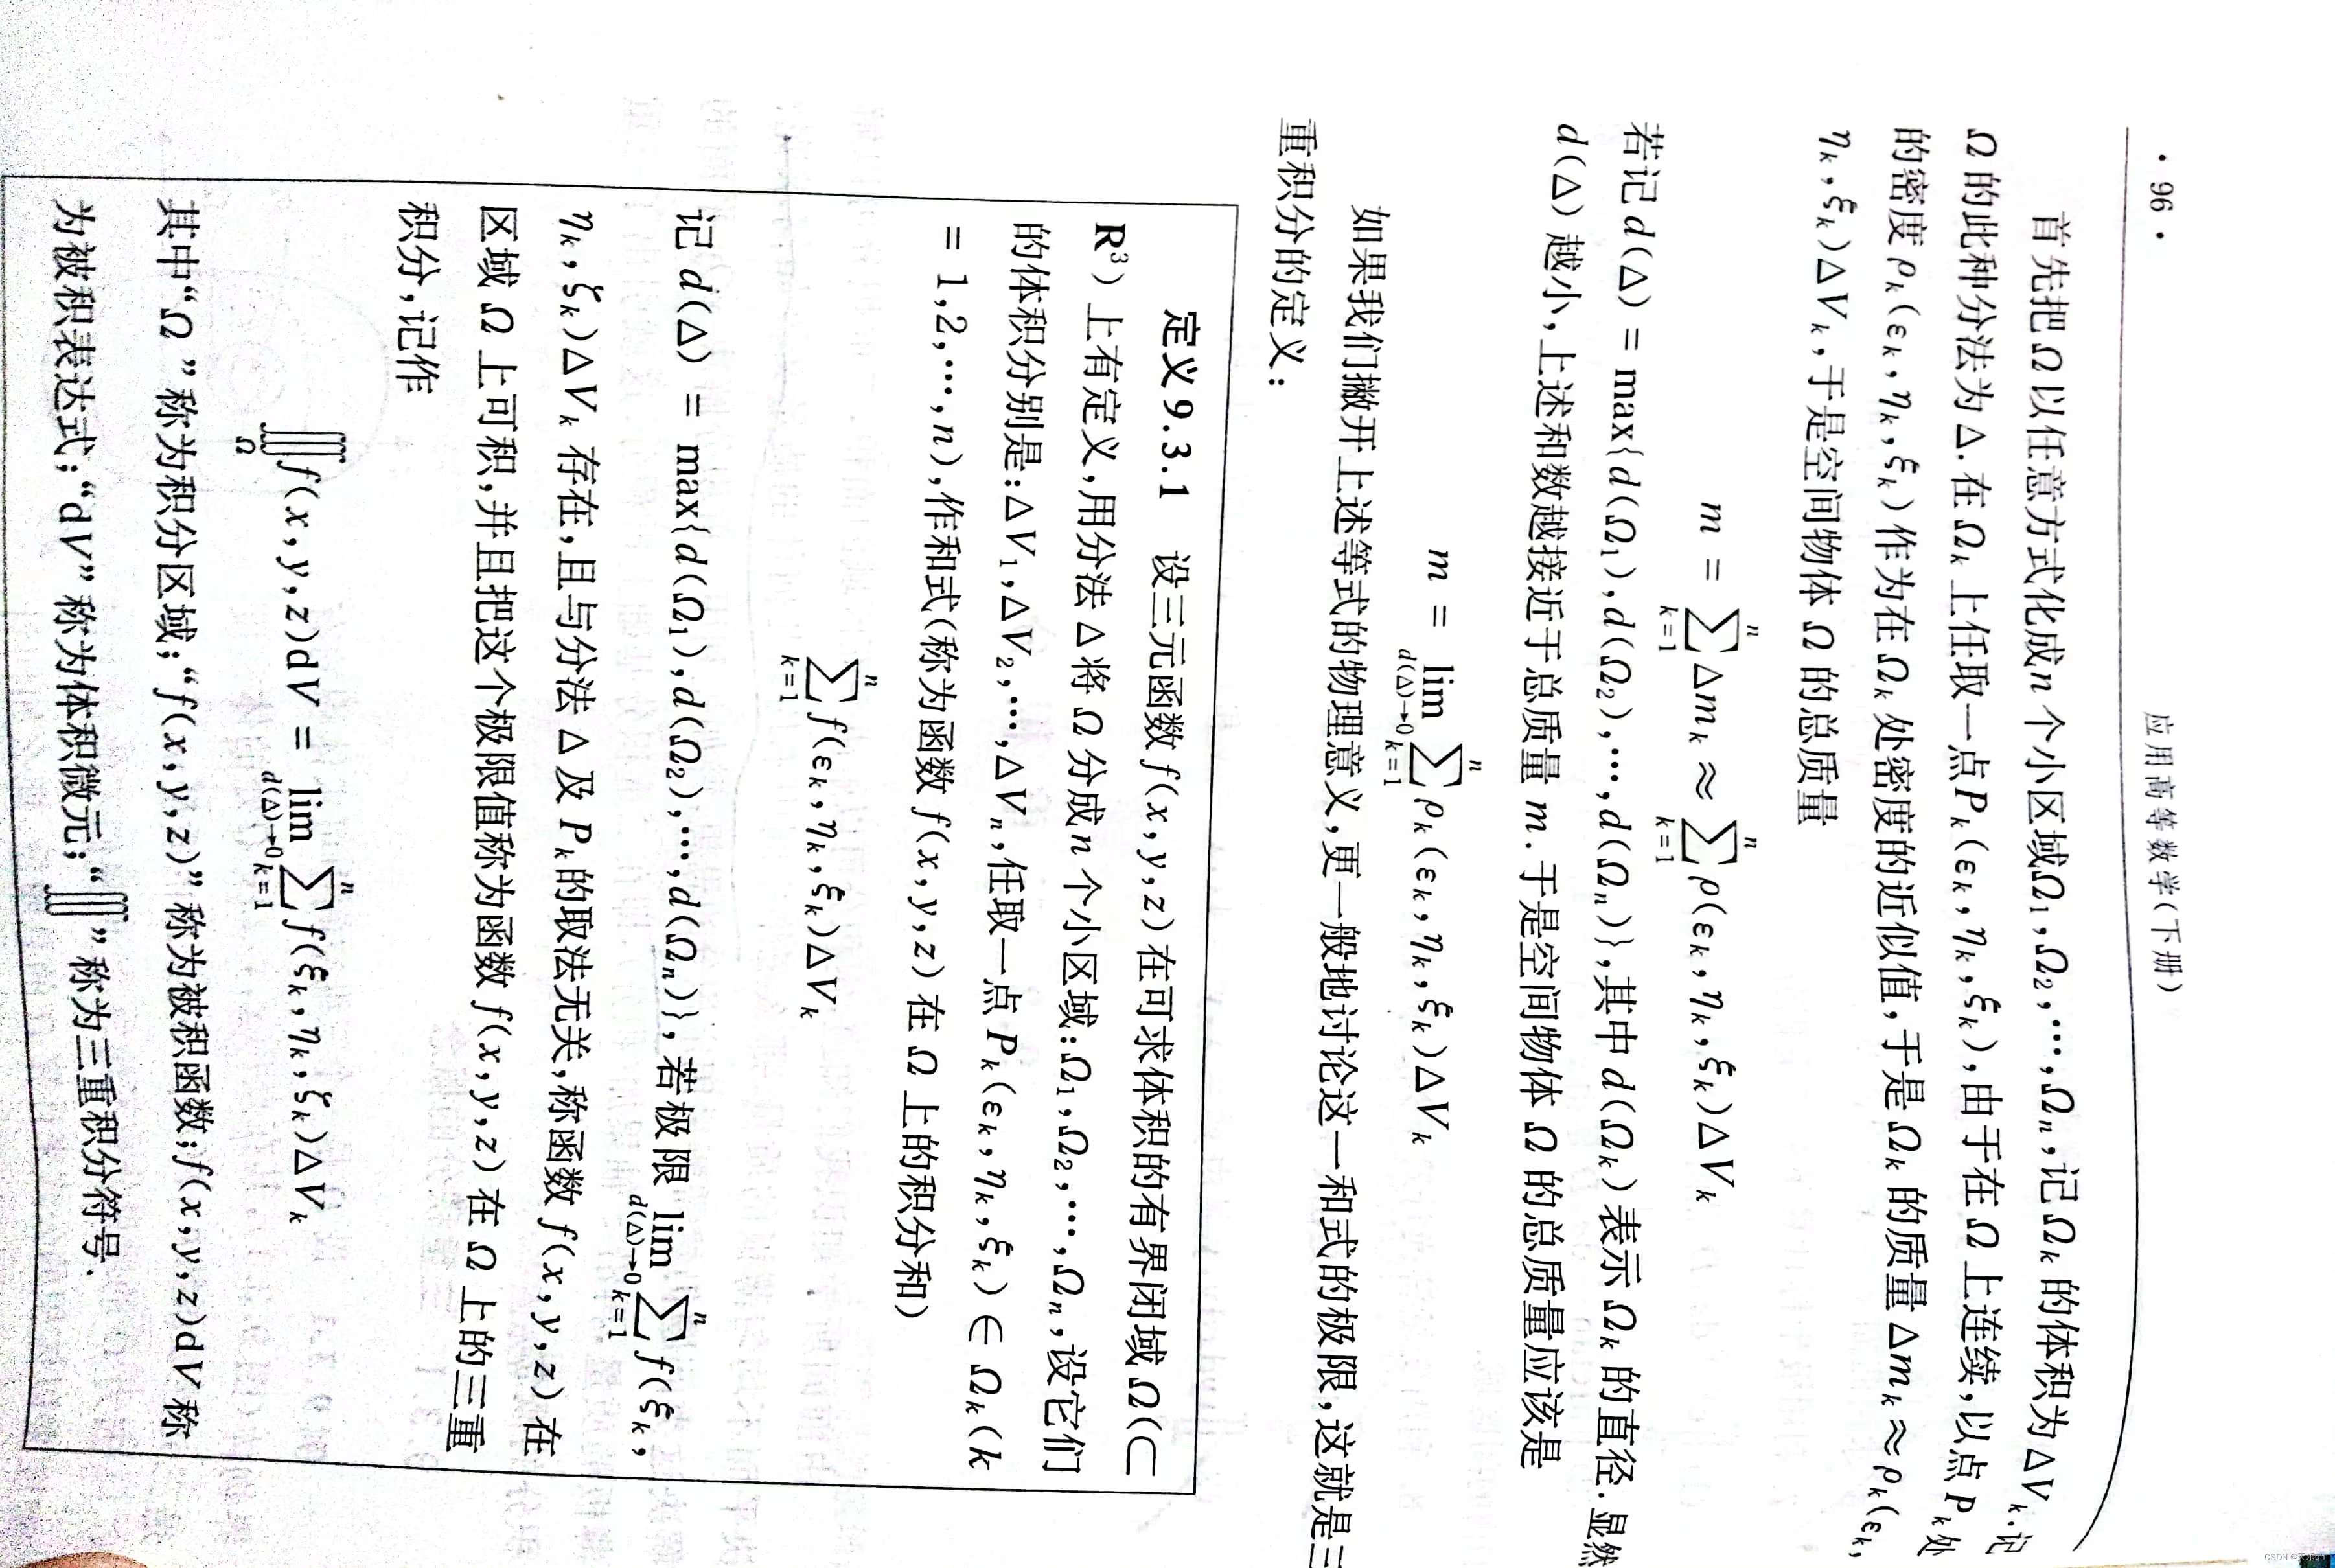 · 96 ·
应用高等数学(下册)
首先把 Ω 以任意方式化成 n 个小区域Ω₁,Ω₂,⋯,Ωₙ,记 Ωₖ 的体积为 ΔVₖ.记
Ω 的此种分法为 Δ. 在 Ωₖ 上任取一点 Pₖ(εₖ,ηₖ,ξₖ),由于在 Ω 上连续,以点 Pₖ处
的密度 ρₖ(εₖ,ηₖ,ξₖ)作为在 Ωₖ 处密度的近似值,于是 Ωₖ 的质量 Δmₖ ≈ ρₖ(εₖ,
ηₖ,ξₖ)ΔVₖ,于是空间物体 Ω 的总质量
m = ∑ₖ₌₁ⁿ Δmₖ ≈ ∑ₖ₌₁ⁿ ρ(εₖ,ηₖ,ξₖ)ΔVₖ
若记 d(Δ) = max{d(Ω₁),d(Ω₂),⋯,d(Ωₙ)},其中 d(Ωₖ)表示 Ωₖ 的直径. 显然
d(Δ)越小,上述和数越接近于总质量 m. 于是空间物体 Ω 的总质量应该是
m = lim_{d(Δ)→0} ∑ₖ₌₁ⁿ ρₖ(εₖ,ηₖ,ξₖ)ΔVₖ
如果我们撇开上述等式的物理意义,更一般地讨论这一和式的极限,这就是三
重积分的定义:
定义9.3.1 设三元函数 f(x,y,z)在可求体积的有界闭域 Ω(⊂
R³)上有定义,用分法 Δ 将 Ω 分成 n 个小区域:Ω₁,Ω₂,⋯,Ωₙ,设它们
的体积分别是:ΔV₁,ΔV₂,⋯,ΔVₙ,任取一点 Pₖ(εₖ,ηₖ,ξₖ) ∈ Ωₖ(k
= 1,2,⋯,n),作和式(称为函数 f(x,y,z)在 Ω 上的积分和)
∑ₖ₌₁ⁿ f(εₖ,ηₖ,ξₖ)ΔVₖ
记 d(Δ) = max{d(Ω₁),d(Ω₂),⋯,d(Ωₙ)},若极限 lim_{d(Δ)→0} ∑ₖ₌₁ⁿ f(ξₖ,
ηₖ,ζₖ)ΔVₖ 存在,且与分法 Δ 及 Pₖ的取法无关,称函数 f(x,y,z)在
区域 Ω 上可积,并且把这个极限值称为函数 f(x,y,z)在 Ω 上的三重
积分,记作
∭_Ω f(x,y,z)dV = lim_{d(Δ)→0} ∑ₖ₌₁ⁿ f(ξₖ,ηₖ,ζₖ)ΔVₖ
其中“Ω”称为积分区域;“f(x,y,z)”称为被积函数;f(x,y,z)dV 称
为被积表达式;“dV”称为体积微元;“∭”称为三重积分符号.